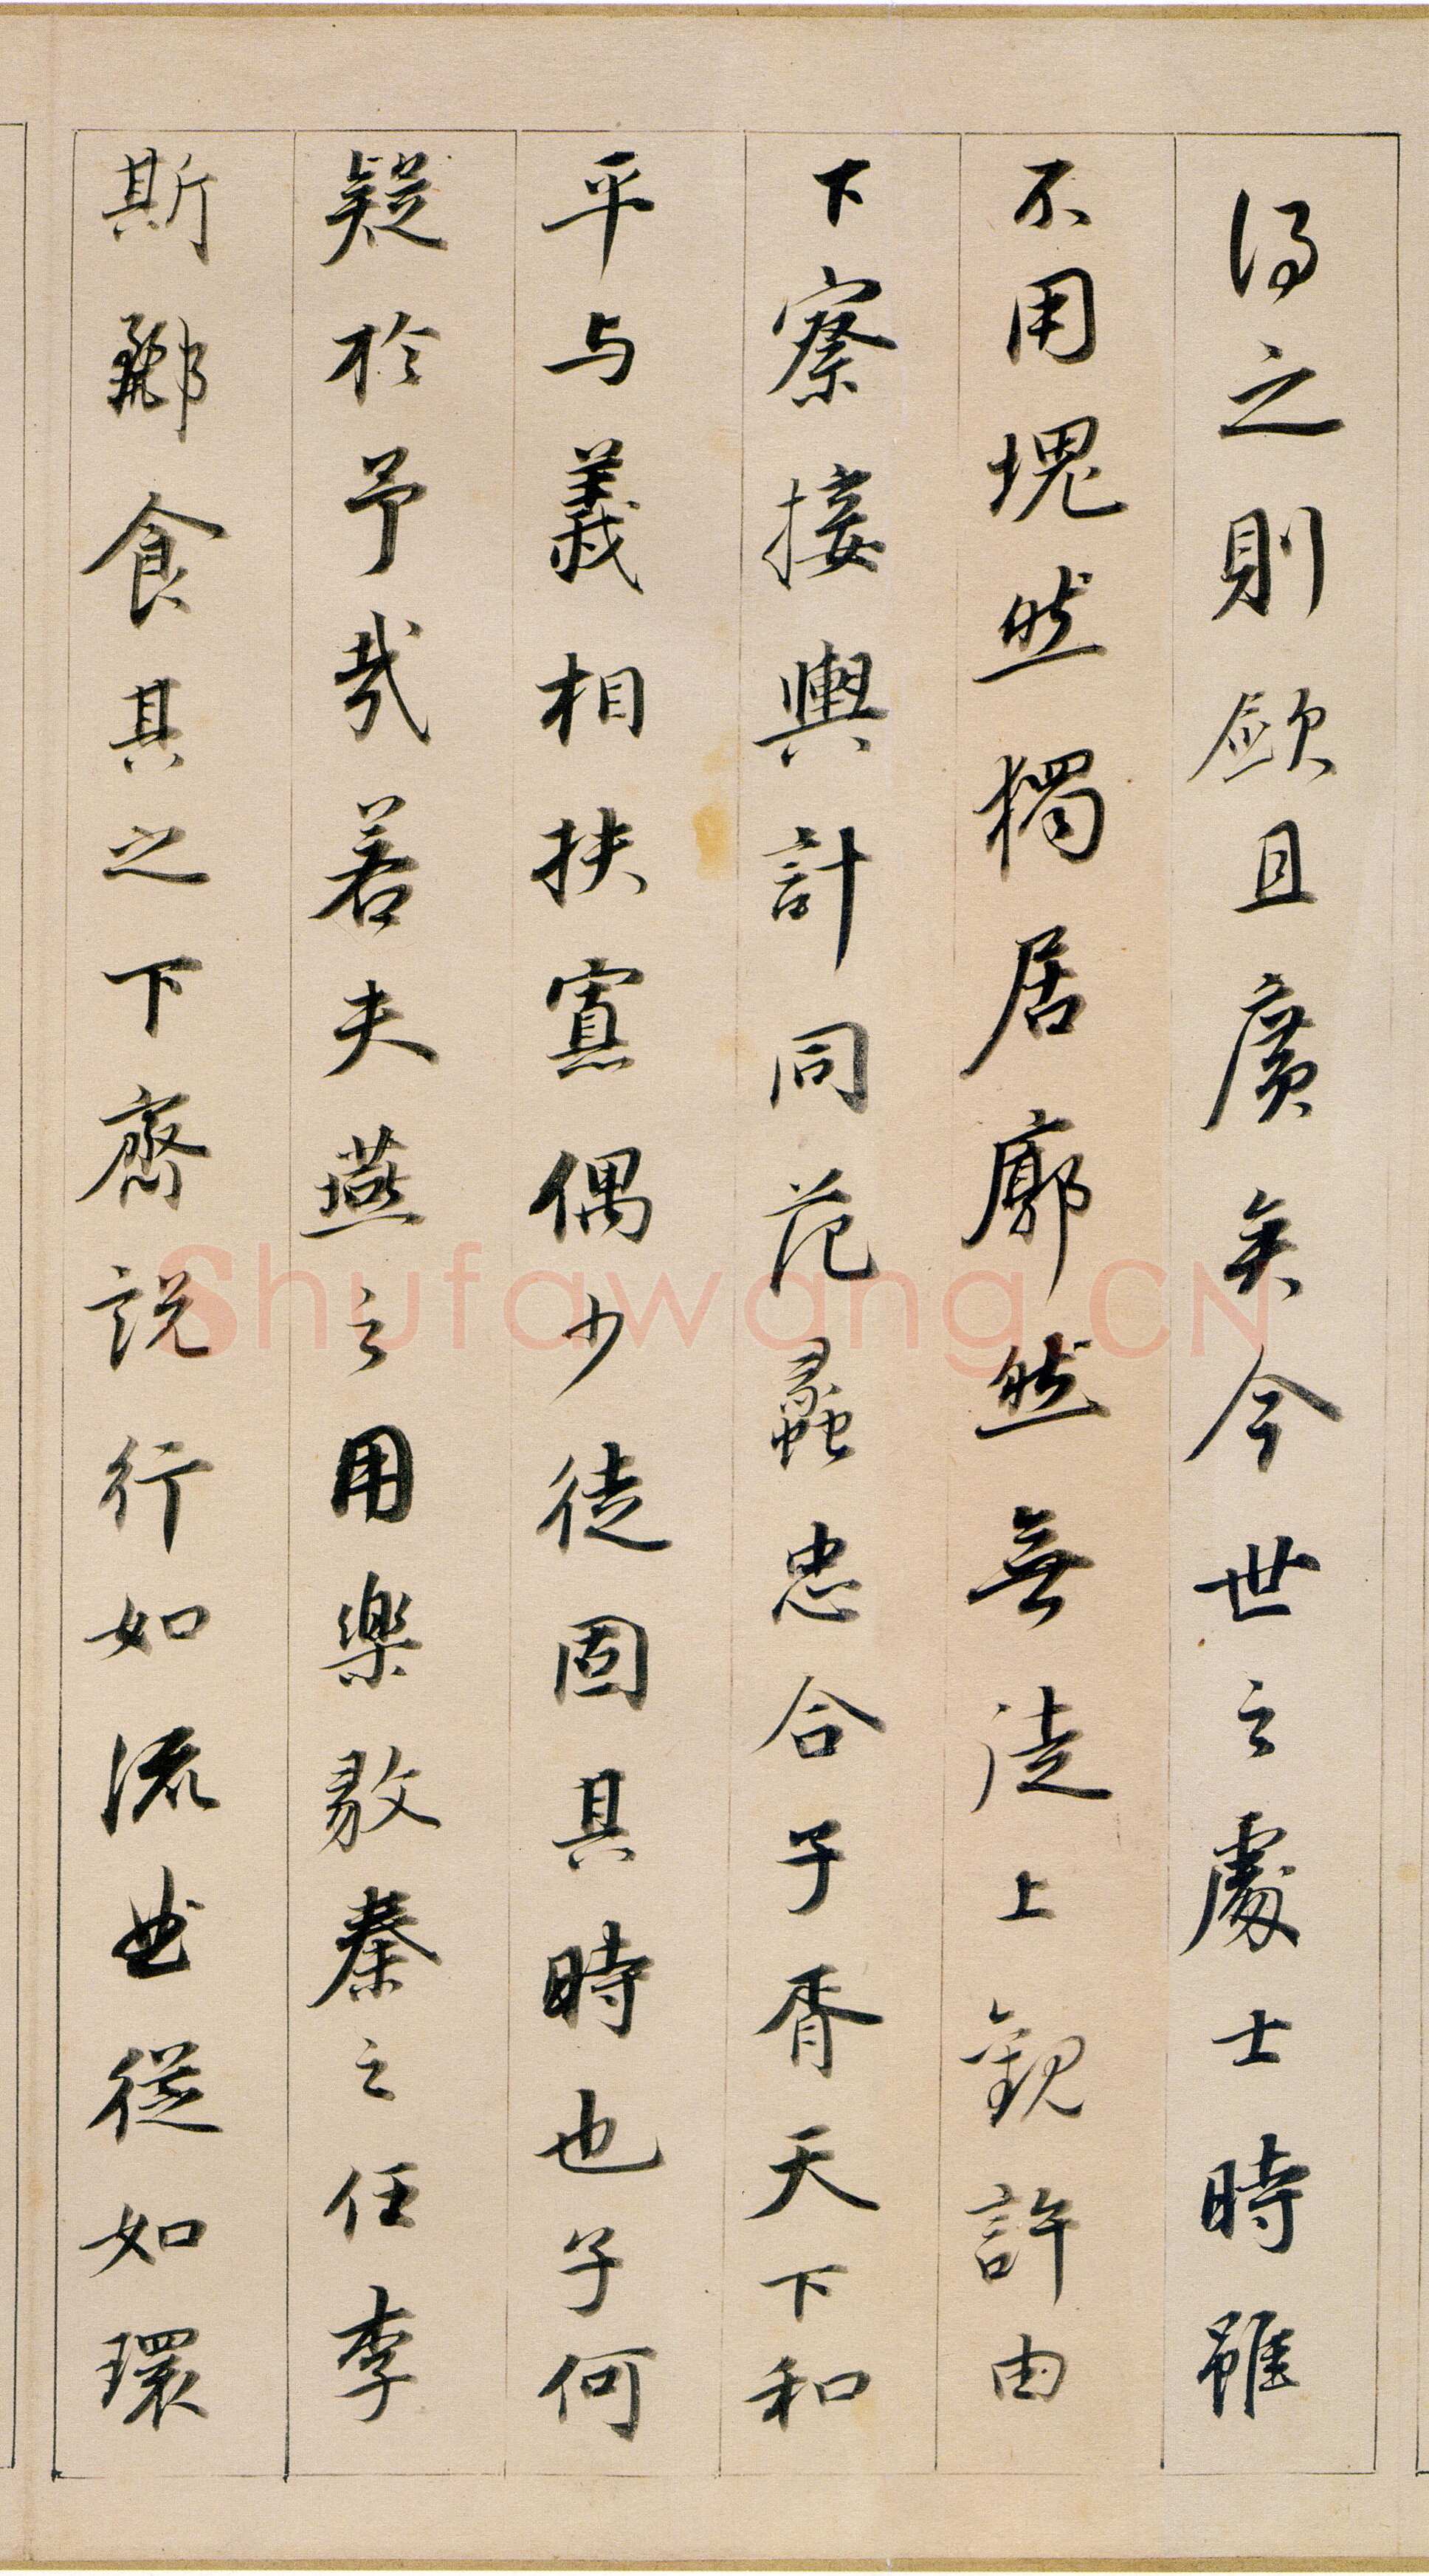 得之則歛且廣矣今世之處士時雖
不用塊然獨居廓然無徒上觀許由
下察接輿計同范蠡忠合子胥天下和
平与義相扶寡偶少徒固其時也子何
疑於予哉若夫燕之用樂毅秦之任李
斯酈食其之下齊說行如流曲從如環
Shufawang.CN